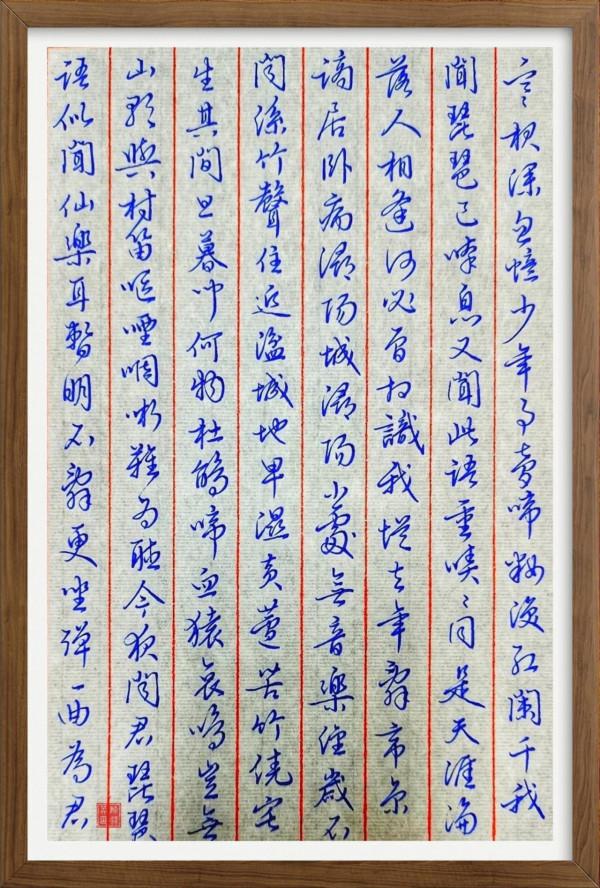 寒夜深忽憶少年事夢啼妝淚紅闌干我
聞琵琶已嘆息又聞此語重唧〻同是天涯淪
落人相逢何必曾相識我從去年辭帝京
謫居臥病潯陽城潯陽小處無音樂終歲不
聞絲竹聲住近湓城地早濕黃蘆苦竹繞宅
生其間旦暮聞何物杜鵑啼血猿哀鳴豈無
山歌與村笛嘔啞啁哳難為聽今夜聞君琵琶
語似聞仙樂耳暫明不辭更坐彈一曲為君